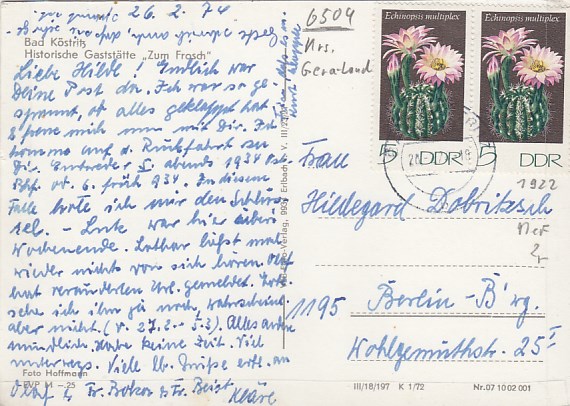 26. 2. 74
Bad Köstritz
Historische Gaststätte „Zum Frosch"
Liebe Hilde! Endlich war
Deine Post da. Ich war so ge-
spannt, ob alles geklappt hat.
freue mich nun mit Dir. Ich
komme auf d. Rückfahrt zu
Dir. Entweder 5. abends 1934 Ost-
Bhf. od. 6. früh 934. In diesem
Falle holte ich mir den Schlüs-
sel. - war hier übers
Wochenende. Lothar läßt mal
wieder nichts von sich hören od.
hat veränderten Url. gemeldet. Evtl.
sehe ich ihn ja noch, wahrscheinl.
aber nicht (v. 27.2. - 5.3) Alles andre
mündlich. Habe keine Zeit. Viel
unterwegs. Viele lb. Grüße erst. an
Olaf & Fr. & Fr. Beist.
Kläre
Foto Hoffmann
EVP M -.25
V. III/22
Verlag, 9931 Erlbach
6504
Krs.
Gera-Land
Echinopsis multiplex
5 DDR
Echinopsis multiplex
5 DDR
1922
Frau
Hildegard Dobritzsch
1195 Berlin-B'wg.
Wohlgemuthstr. 25 I
III/18/197 K 1/72
Nr. 07 10 02 001